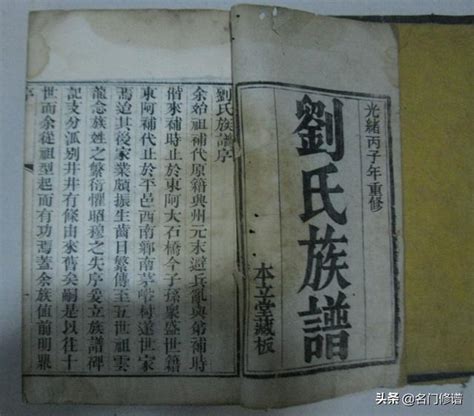 光緒丙子年重修
劉氏族譜
本立堂藏板
劉氏族譜序
余始祖補代原籍興州元末避兵亂與弟補時
偕來補時止於東阿大石橋今子孫衆盛世籍
東阿補代止於平邑西南鄣南蒙營村遂世家
焉迨其後家業頗振生齒日繁傳至五世祖雲
龍念族姓之繁衍懼昭穆之失序爰立族譜碑
記支分派別井井有條由來舊矣嗣是以往十
世而余從祖型起而有功焉蓋余族值前明鼎
序
头条 @名门修谱